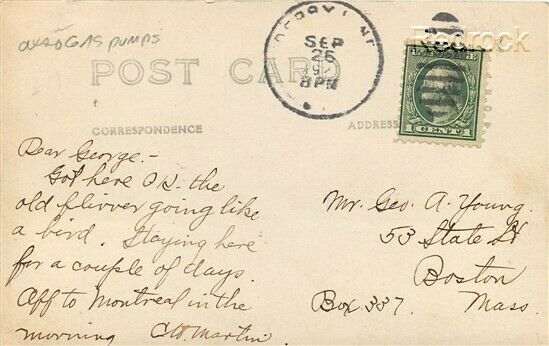 GAS PUMPS
Redrock
SEP
26
8 PM
POST CARD
1 CENT 1
CORRESPONDENCE
ADDRESS
Dear George.-
Got here O.K. the
old flivver going like
a bird. Staying here
for a couple of days.
Off to Montreal in the
morning C.W. Martin
Mr. Geo. A. Young.
53 State St
Boston
Box 337. Mass.